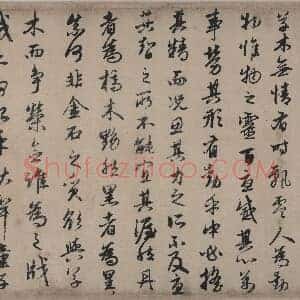 草木無情有時飄零人為動
物惟物之靈百憂感其心萬
事勞其形有動乎中必搖
其精而況思其力之所不及憂
其智之所不能宜其渥然丹
者為槁木黟然黑者為星
奈何非金石之質欲與草
木而爭榮念誰為之戕